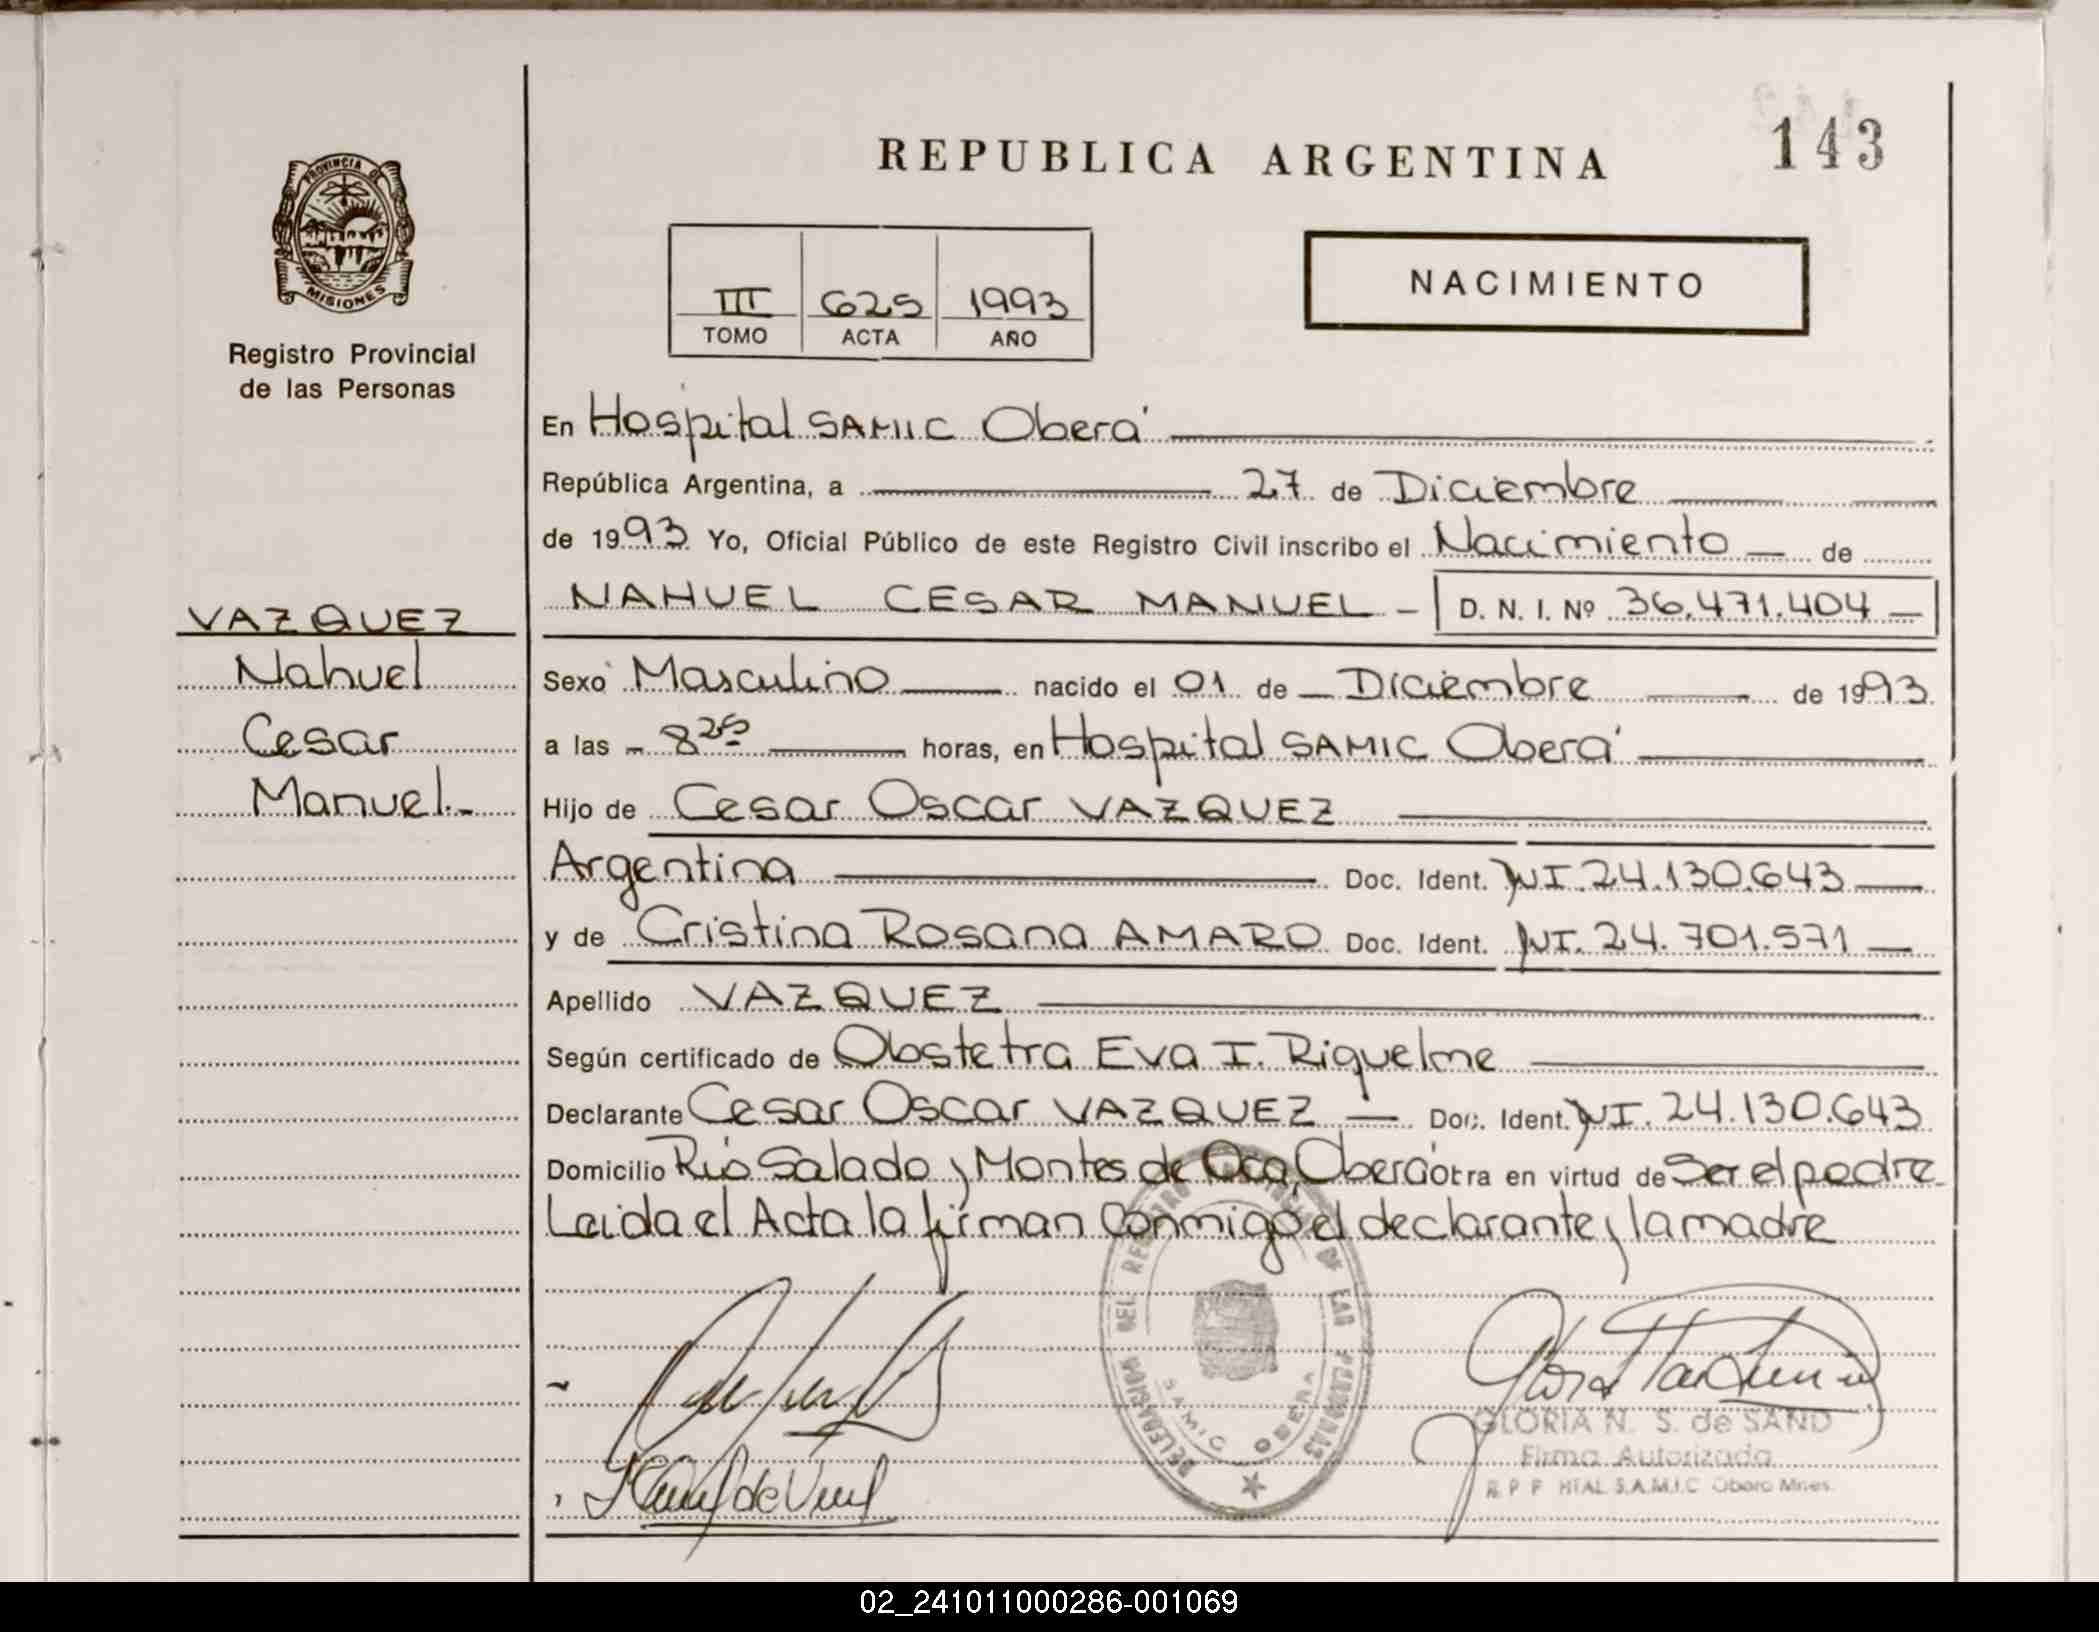 143
REPUBLICA ARGENTINA
PROVINCIA DE
MISIONES
Registro Provincial
de las Personas
III 625 1993
TOMO ACTA AÑO
NACIMIENTO
En Hospital SAMIC Oberá
República Argentina, a 27 de Diciembre
de 1993 Yo, Oficial Público de este Registro Civil inscribo el Nacimiento de
NAHUEL CESAR MANUEL - D. N. I. Nº 36.471.404
VAZQUEZ
Nahuel
Cesar
Manuel.-
Sexo Masculino nacido el 01 de Diciembre de 1993
a las 8 25 horas, en Hospital SAMIC Oberá
Hijo de Cesar Oscar VAZQUEZ
Argentina Doc. Ident. DNI. 24.130.643
y de Cristina Rosana AMARO Doc. Ident. DNI. 24.701.571
Apellido VAZQUEZ
Según certificado de Obstetra Eva I. Riquelme
Declarante Cesar Oscar VAZQUEZ Doc. Ident. DNI. 24.130.643
Domicilio Rio Salado y Montes de Oca, Oberá otra en virtud de Ser el padre
Leida el Acta la firman Conmigo el declarante y la madre
DELEGACION DEL REGISTRO DE LAS PERSONAS
SAMIC OBERA
GLORIA N. S. de SAND
Firma Autorizada
R. P. P. HTAL S.A.M.I.C Obera Mnes.
02_241011000286-001069